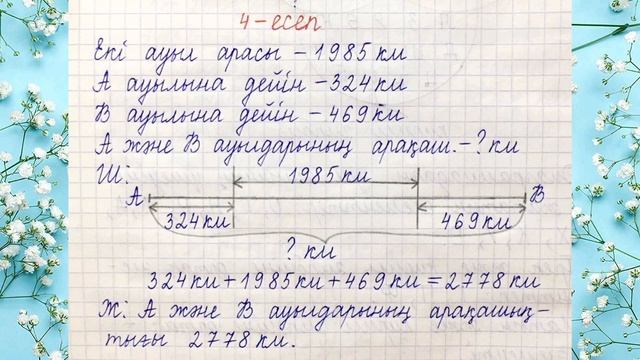 4-есеп
Екі ауыл арасы – 1985 км
А ауылына дейін – 324 км
В ауылына дейін – 469 км
А және В ауылдарының арақаш. – ? км
Ш:
1985 км
А
В
324 км
469 км
? км
324 км + 1985 км + 469 км = 2778 км
Ж: А және В ауылдарының арақашық-
тығы 2778 км.